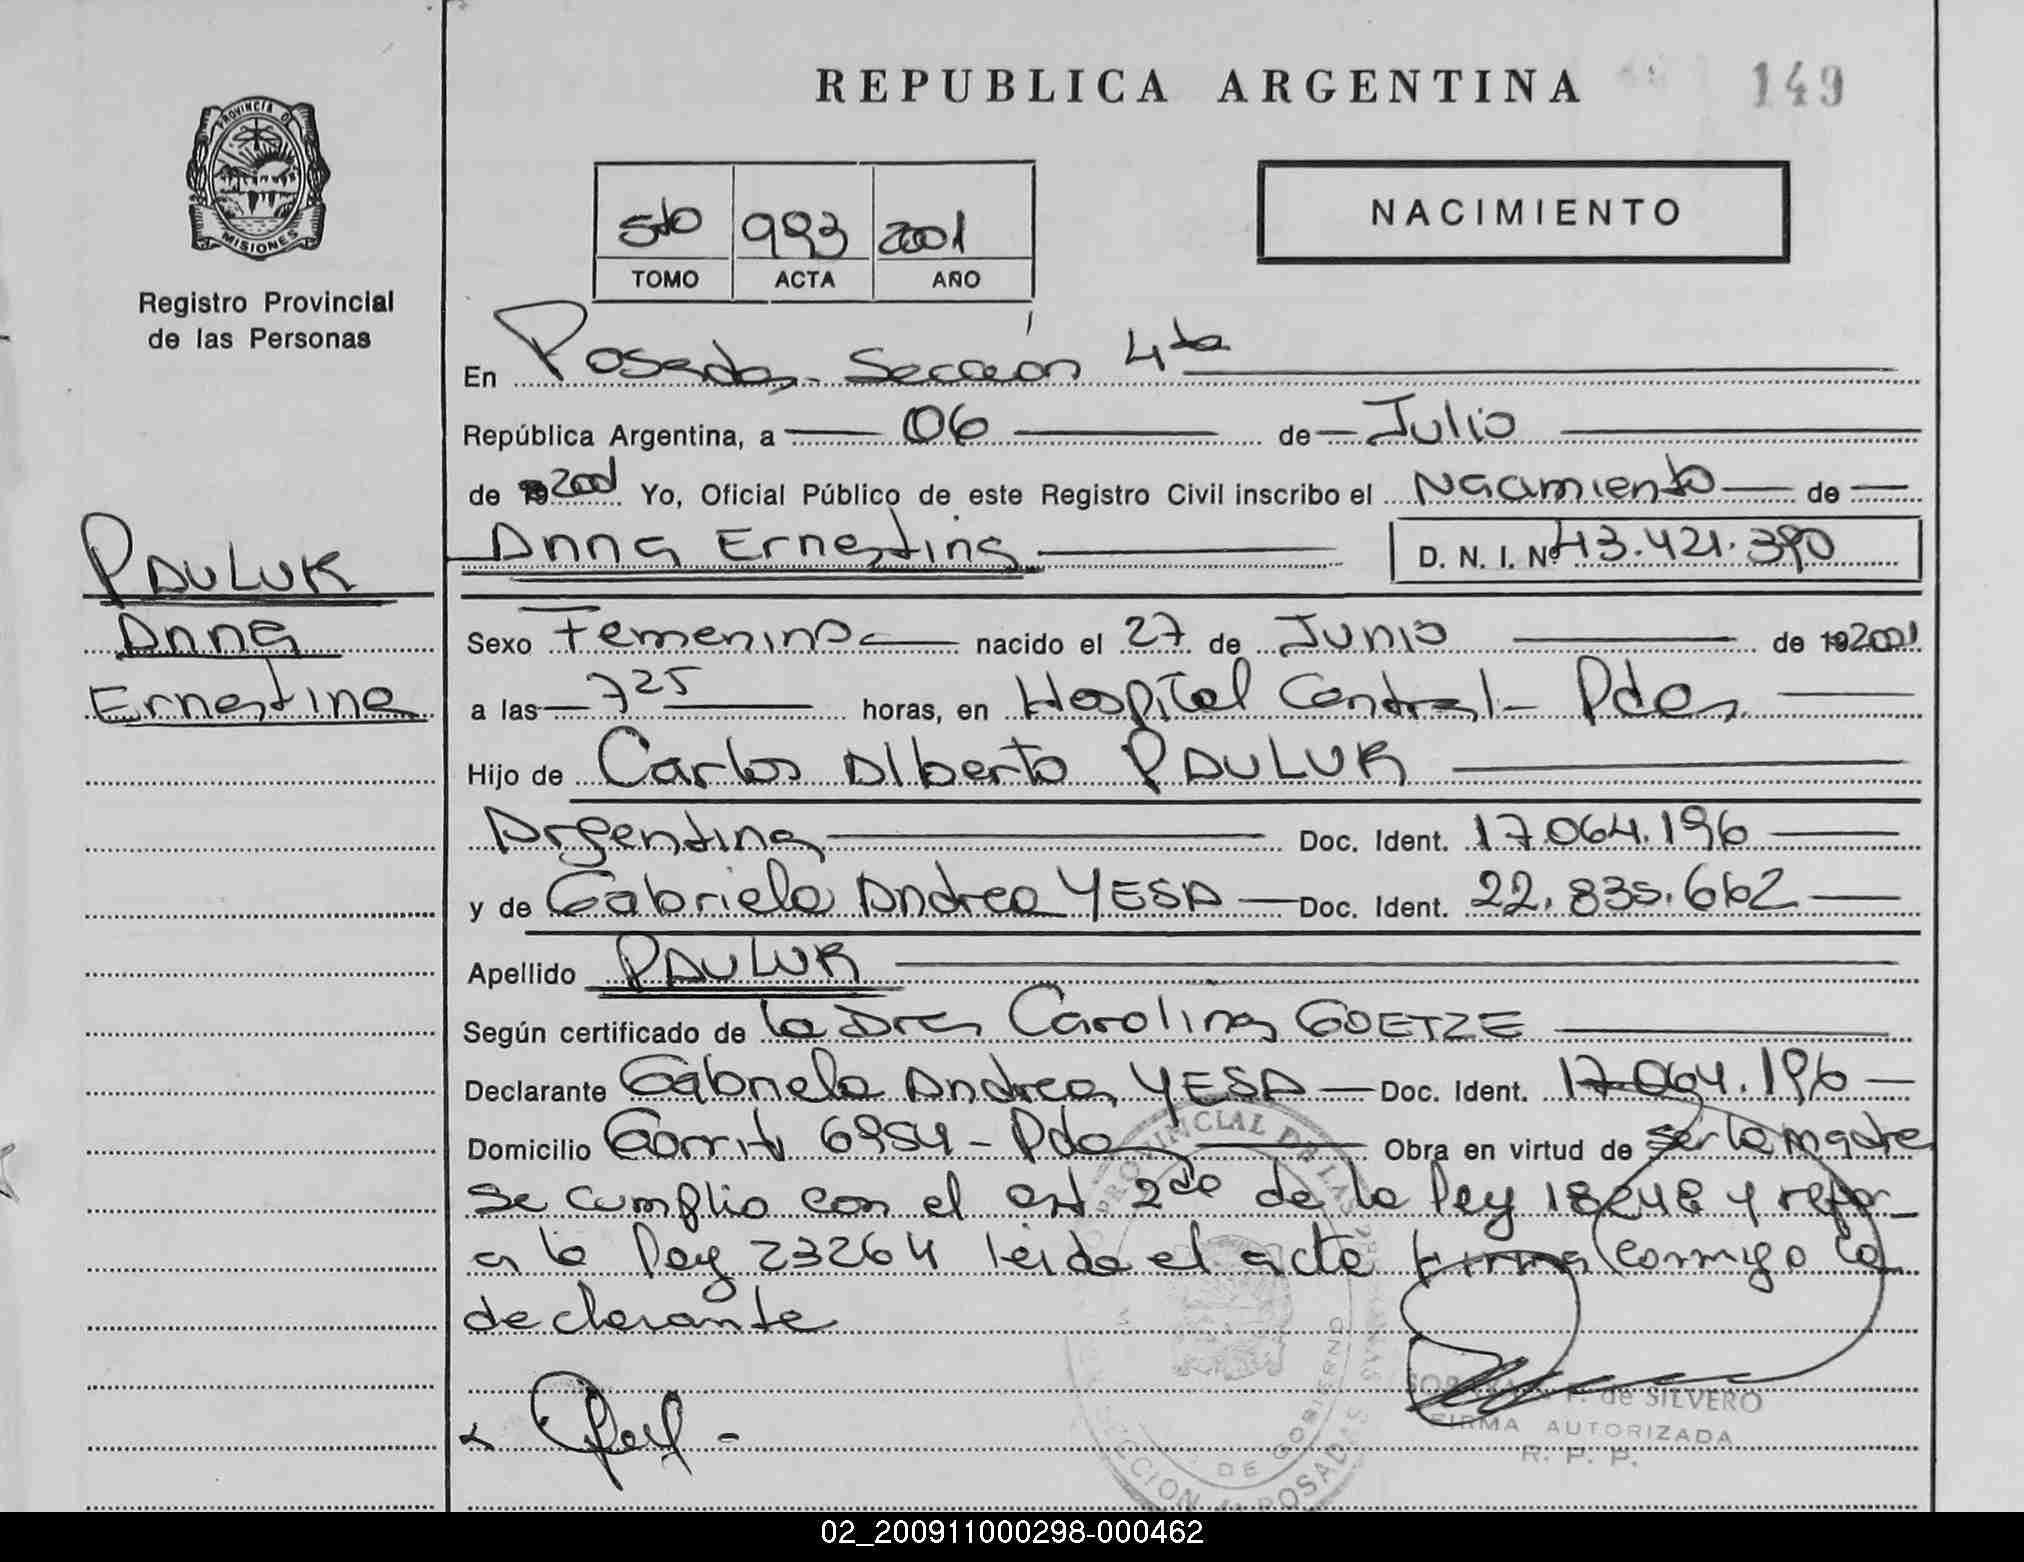 REPUBLICA ARGENTINA
149
PROVINCIA D
MISIONES
Registro Provincial
de las Personas
5to 993 2001
TOMO ACTA AÑO
NACIMIENTO
En Posadas - Sección 4ta
República Argentina, a 06 de Julio
de 2001 Yo, Oficial Público de este Registro Civil inscribo el Nacimiento de
Anna Ernestina D. N. I. Nº 43.421.390
PAULUK
Anna
Ernestina
Sexo Femenino nacido el 27 de Junio de 192001
a las 7 25 horas, en Hospital Central - Pdas
Hijo de Carlos Alberto PAULUK
Argentina Doc. Ident. 17.064.196
y de Gabriela Andrea YESA Doc. Ident. 22.835.662
Apellido PAULUK
Según certificado de la Dra Carolina GOETZE
Declarante Gabriela Andrea YESA Doc. Ident. 17.064.196
Domicilio Gorriti 6954 - Pdas Obra en virtud de ser la madre
se cumplio con el art 2do de la ley 18248 y refor_
a la ley 23264 leida el acta firma conmigo la
declarante
de SILVERO
FIRMA AUTORIZADA
R. P. P.
02_200911000298-000462